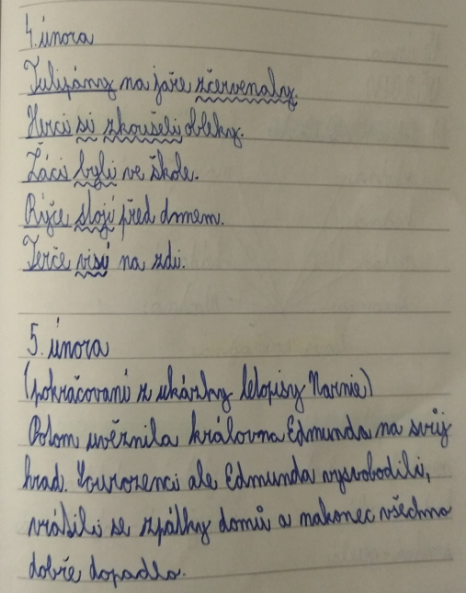 4. února
Tulipány na jaře zčervenaly.
Herci si zkoušeli obleky.
Žáci byli ve škole.
Rýče stojí před domem.
Terče visí na zdi.
5. února
(pokračovaní z ukázky letopisy Narnie)
Potom uvěznila královna Edmunda na svůj
hrad. Sourozenci ale Edmunda vysvobodili,
vrátili se zpátky domů a nakonec všechno
dobře dopadlo.